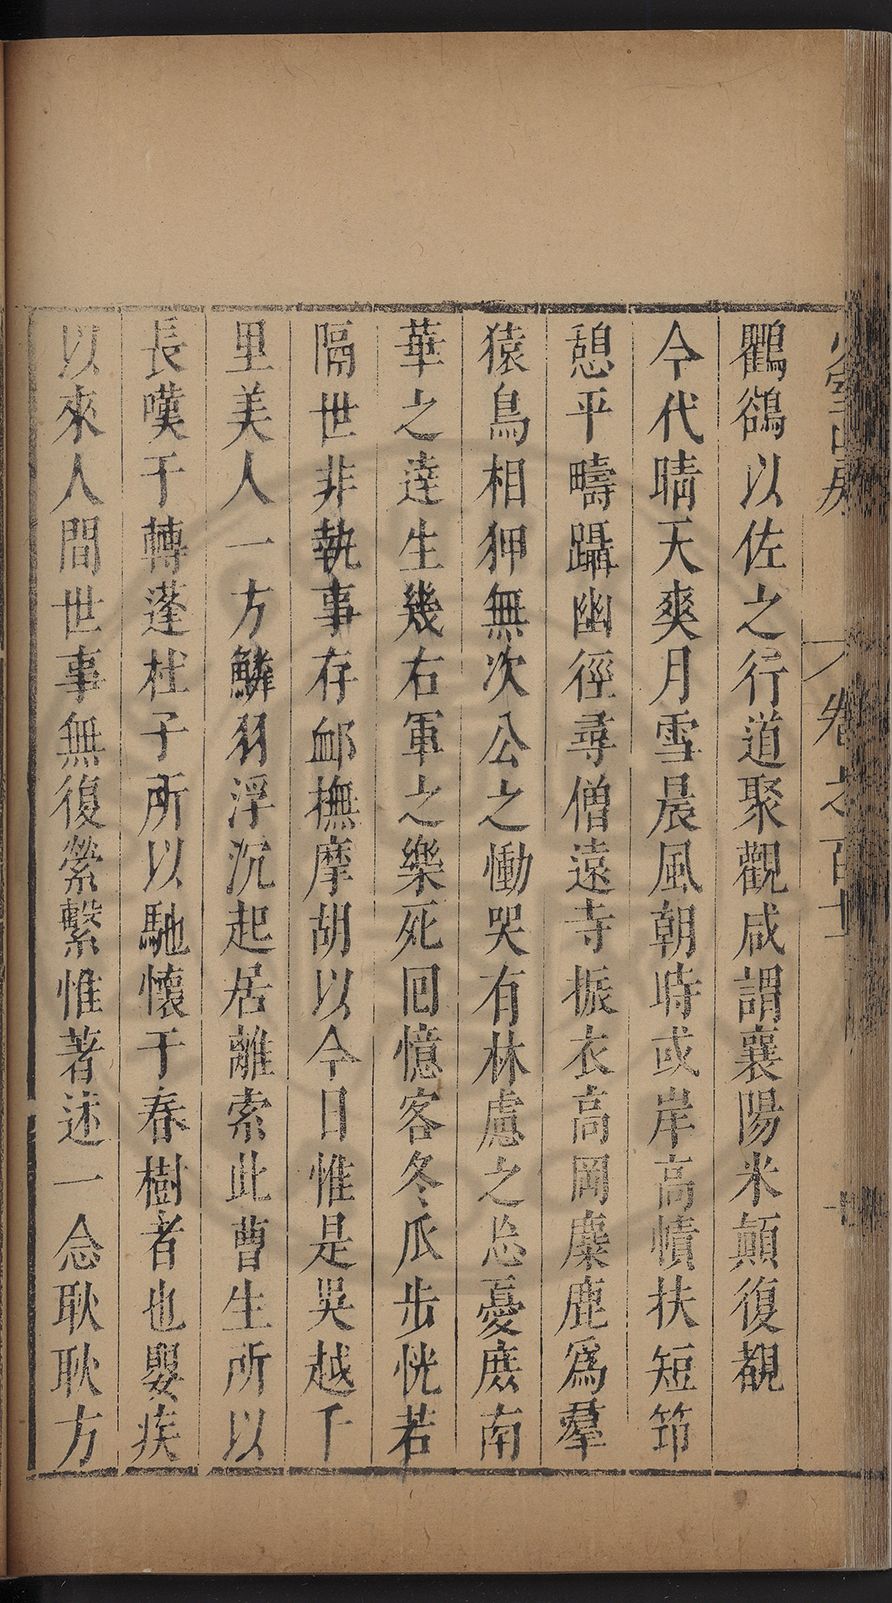 鸜鵒以佐之行道聚觀咸謂襄陽米顛復覩
今代晴天爽月雪晨風朝時或岸高幘扶短笻
憩平疇躡幽徑尋僧遠寺振衣高岡麋鹿爲羣
猿鳥相狎無次公之慟哭有林慮之忘憂庶南
華之達生幾右軍之樂死回憶客冬瓜步恍若
隔世非執事存䘏撫摩胡以今日惟是吳越千
里美人一方鱗羽浮沉起居離索此曹生所以
長嘆于轉蓬杜子所以馳懷于春樹者也嬰疾
以來人間世事無復縈繫惟著述一念耿耿方
卷之百十